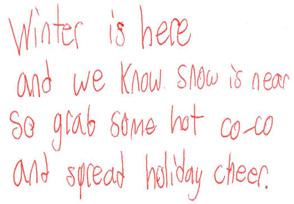 Winter is here
and we know snow is near
so grab some hot co-co
and spread holiday cheer.